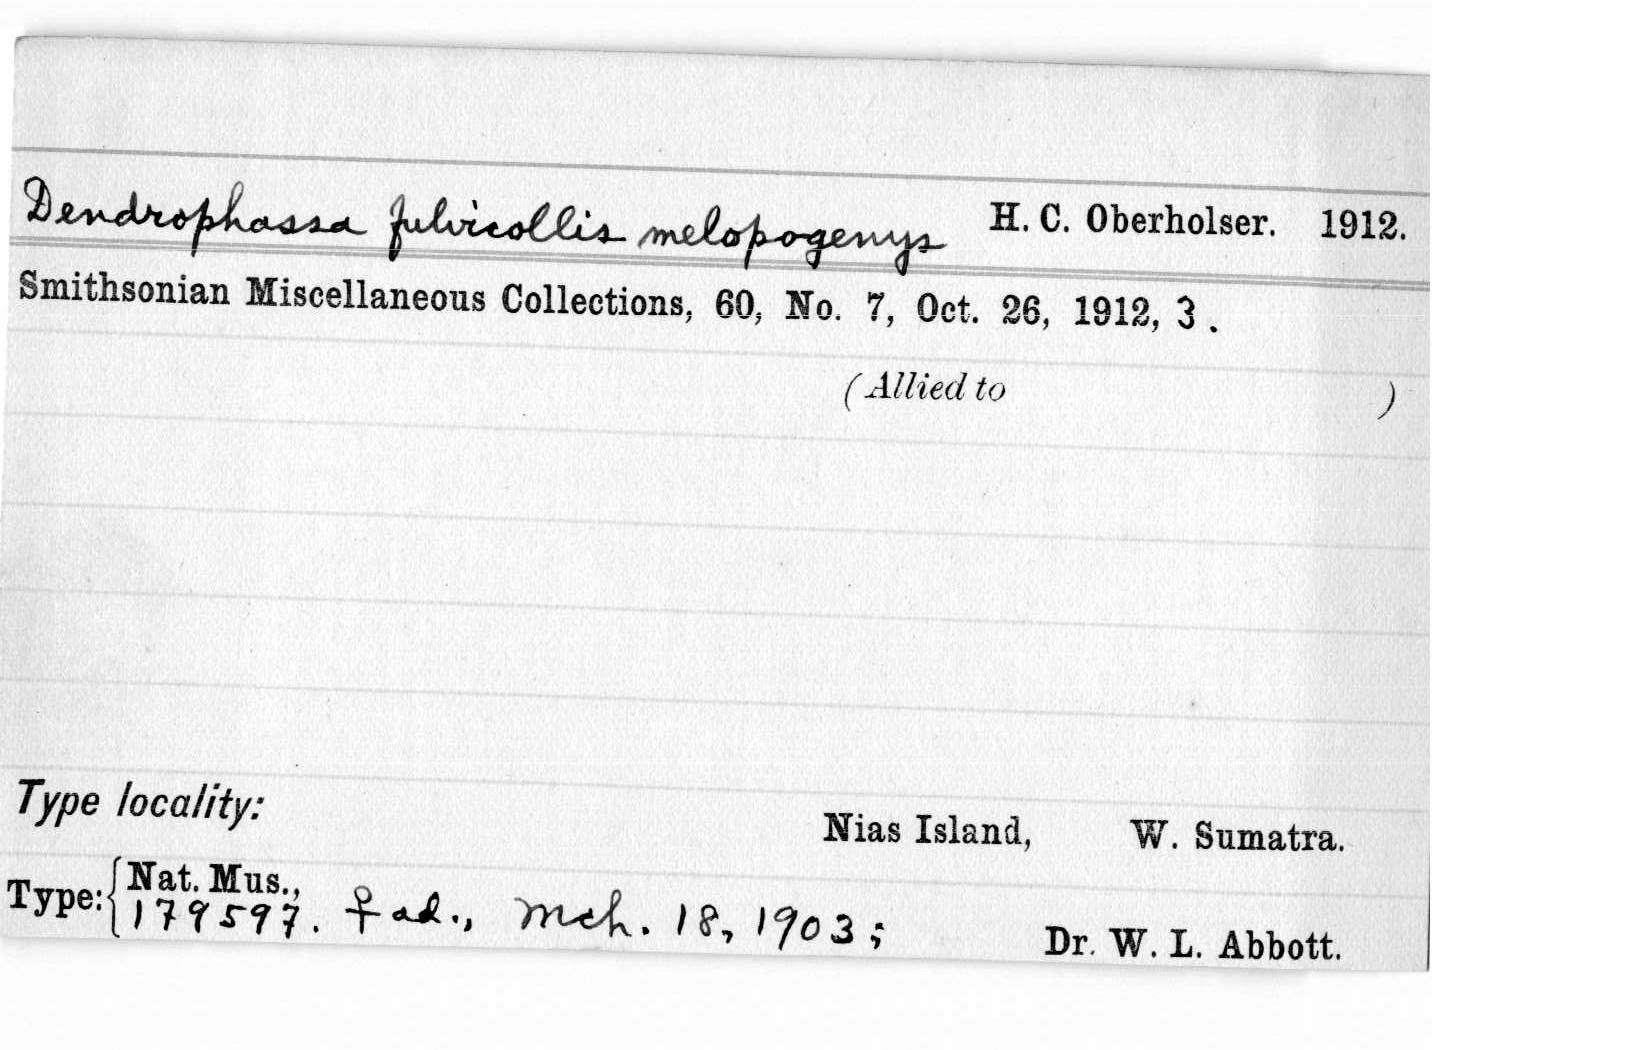 Dendrophassa fulvicollis melopogenys H. C. Oberholser. 1912.
Smithsonian Miscellaneous Collections, 60, No. 7, Oct. 26, 1912, 3.
(Allied to )
Type locality:
Nias Island, W. Sumatra.
Type: { Nat. Mus.,
179597. ♀ ad., Mch. 18, 1903; Dr. W. L. Abbott.